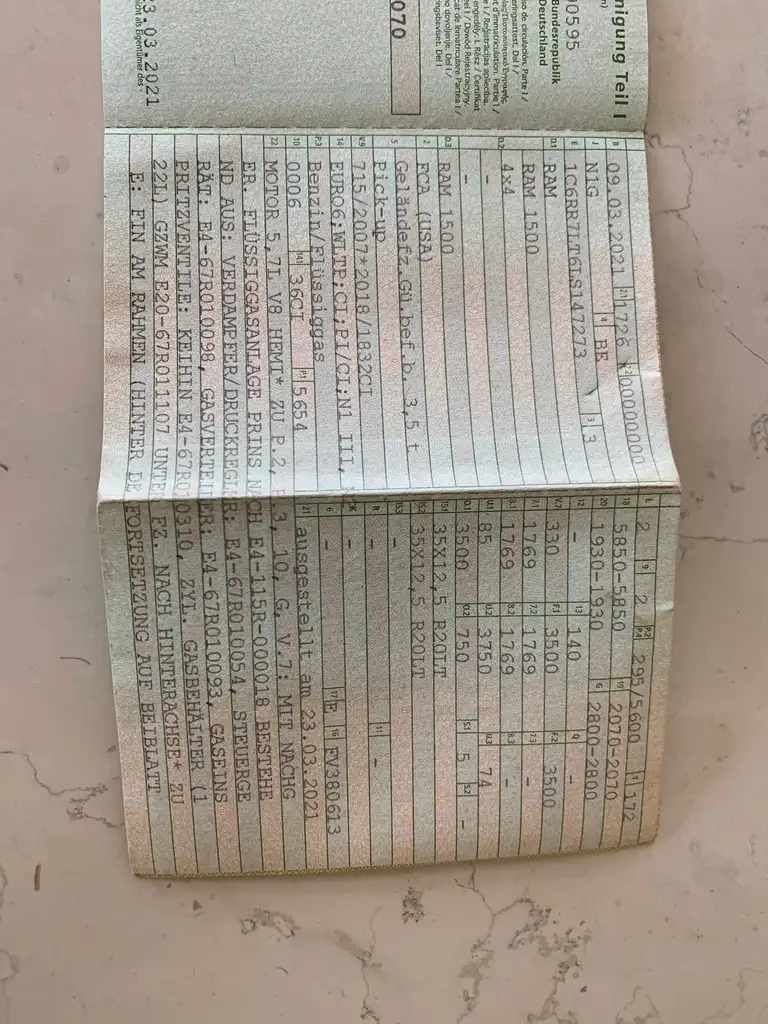 nigung Teil I
Bundesrepublik
Deutschland
00595
070
23.03.2021
B 09.03.2021 2.1 1726 2.2 00000000
J N1G 4 BE 3 3
E 1C6RR7LT6LS147273
D.1 RAM
RAM 1500
D.2 4x4
-
-
D.3 RAM 1500
2 FCA (USA)
5 Geländefz.Gü.bef.b. 3,5 t
Pick-up
V.9 715/2007*2018/1832CI
14 EURO6;WLTP;CI;PI/CI;N1 III,
P.3 Benzin/Flüssiggas
10 0006 14.1 36CI P.1 5654
L 2 9 2 P.2 P.4 295/5600 T 172
18 5850-5850 19 2070-2070
20 1930-1930 G 2800-2800
12 - 13 140 Q -
V.7 330 F.1 3500 F.2 3500
7.1 1769 7.2 1769 7.3 -
8.1 1769 8.2 1769 8.3 -
U.1 85 U.2 3750 U.3 74
O.1 3500 O.2 750 S.1 5 S.2 -
15.1 35X12,5 R20LT
15.2 35X12,5 R20LT
15.3 -
R - 11 -
K - 
6 - 17 E 16 FV380613
21 ausgestellt am 23.03.2021
22 MOTOR 5,7L V8 HEMI* ZU P.2, P.3, 10, G, V.7: MIT NACHG
ER. FLÜSSIGGASANLAGE PRINS NACH E4-115R-000018 BESTEHE
ND AUS: VERDAMPFER/DRUCKREGLER: E4-67R010054, STEUERGE
RÄT: E4-67R010098, GASVERTEILER: E4-67R010093, GASEINS
PRITZVENTILE: KEIHIN E4-67R010310, ZYL. GASBEHÄLTER (1
22L) GZWM E20-67R011107 UNTER FZ. NACH HINTERACHSE* ZU
E: FIN AM RAHMEN (HINTER DE FORTSETZUNG AUF BEIBLATT